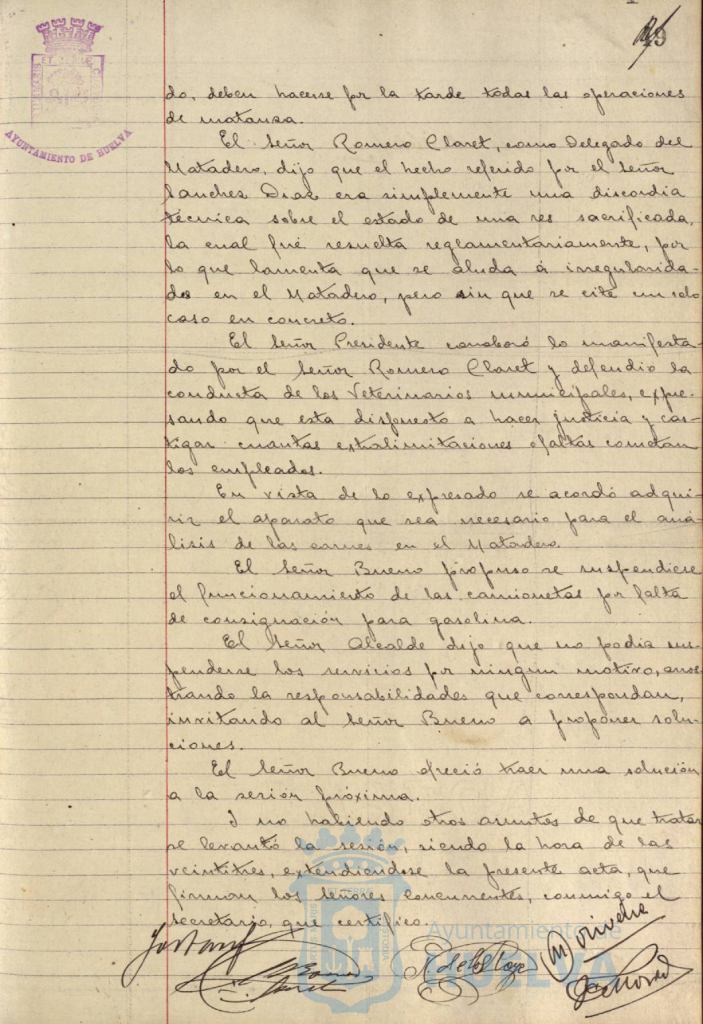 49
AYUNTAMIENTO DE HUELVA
do, deben hacerse por la tarde todas las operaciones
de matanza.
El Señor Romero Claret, como Delegado del
Matadero, dijo que el hecho referido por el Señor
Sanchez Diaz era simplemente una discordia
técnica sobre el estado de una res sacrificada,
la cual fué resuelta reglamentariamente, por
lo que lamenta que se aluda á irregularida-
des en el Matadero, pero sin que se cite un solo
caso en concreto.
El Señor Presidente corroboró lo manifesta-
do por el Señor Romero Claret y defendió la
conducta de los Veterinarios municipales, expre-
sando que esta dispuesto a hacer justicia y cas-
tigar cuantas extralimitaciones ó faltas cometan
los empleados.
En vista de lo expresado se acordó adqui-
rir el aparato que sea necesario para el aná-
lisis de las carnes en el Matadero.
El Señor Bueno propuso se suspendiese
el funcionamiento de las camionetas por falta
de consignación para gasolina.
El Señor Alcalde dijo que no podia sus-
penderse los servicios por ningun motivo, arros-
trando la responsabilidades que correspondan,
invitando al Señor Bueno a proponer solu-
ciones.
El Señor Bueno ofreció traer una solución
a la sesión próxima.
I no habiendo otros asuntos de que tratar
se levantó la sesión, siendo la hora de las
veintitres, extendiendose la presente acta, que
firman los Señores concurrentes, conmigo el
Secretario, que certifico.
Ayuntamiento de
HUELVA
Romero
Claret